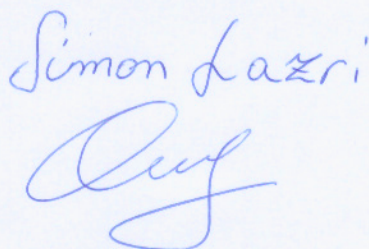 Simon Lazri